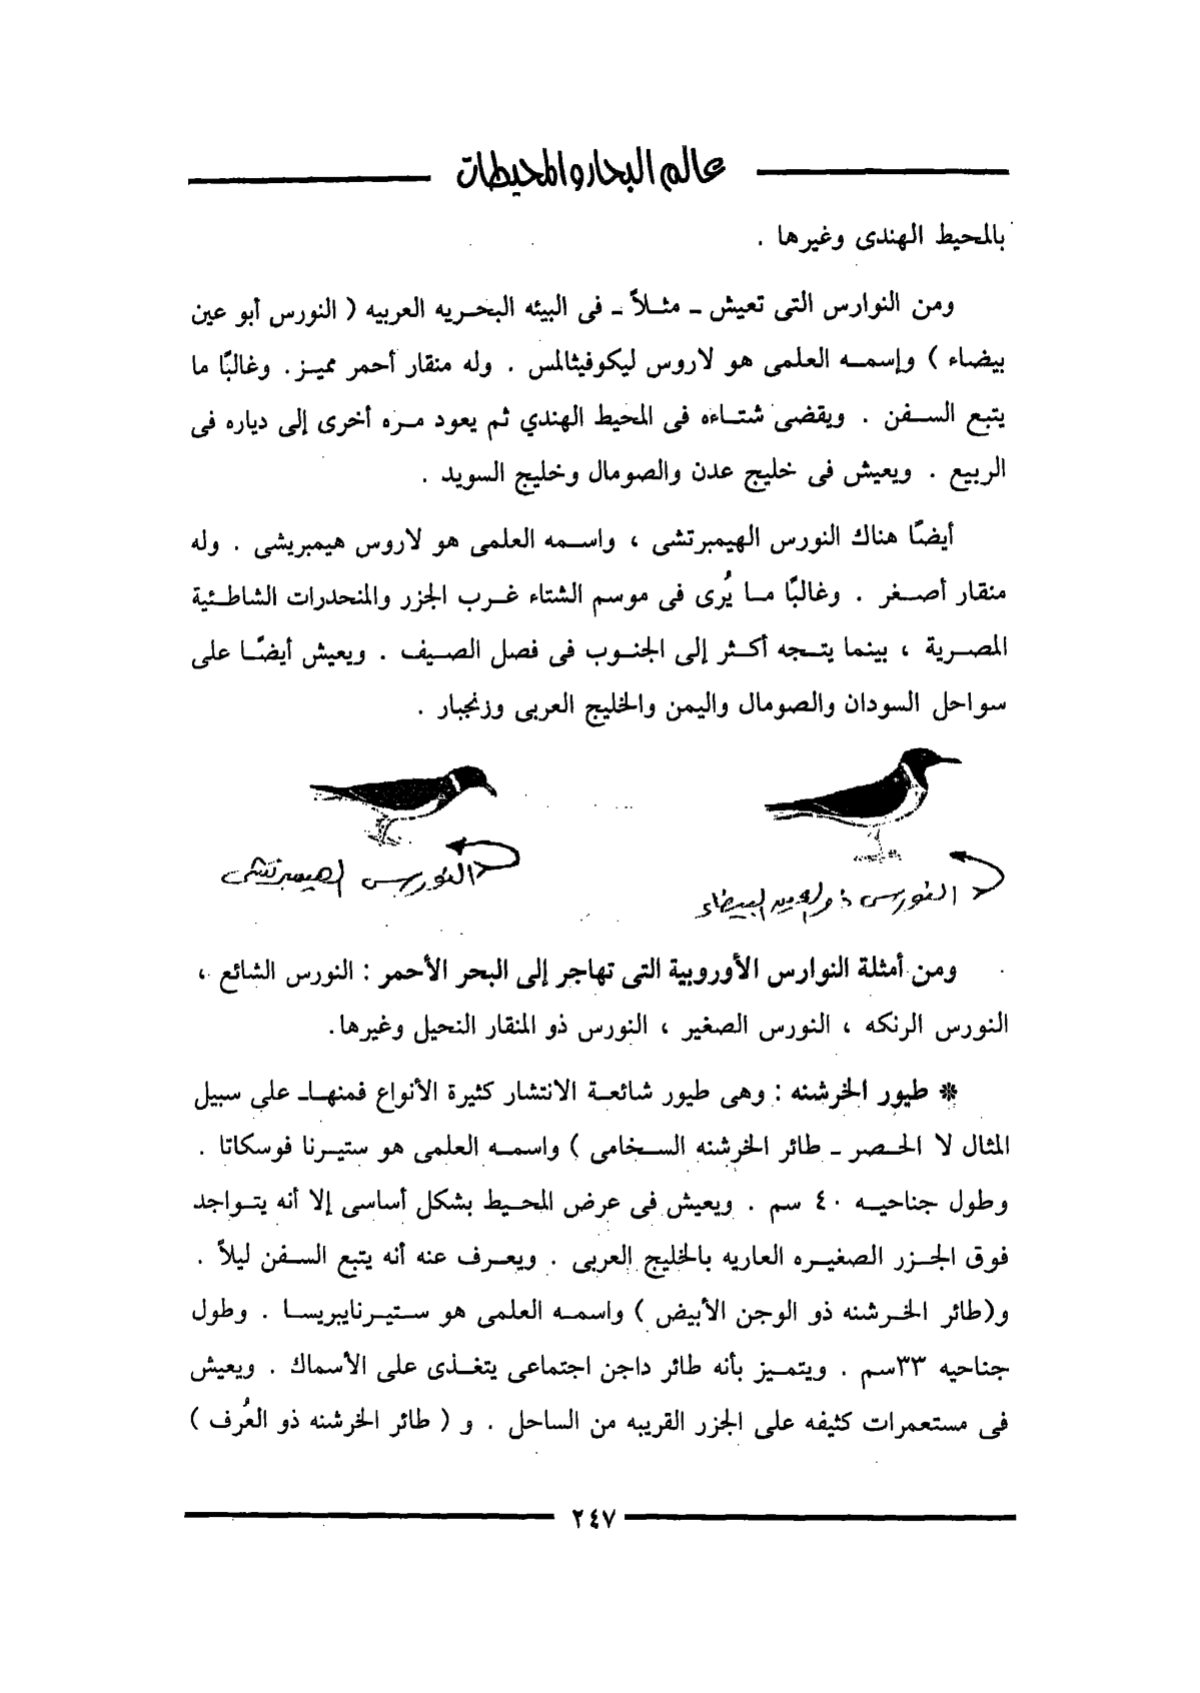 عالم البحار والمحيطات
بالمحيط الهندى وغيرها .
ومن النوارس التى تعيش ـ مثـلاً ـ فى البيئه البحـريه العربيه ( النورس أبو عين
بيضاء ) وإسمـه العلمى هو لاروس ليكوفيثالمس . وله منقار أحمر مميـز. وغالبًا ما
يتبع السـفن . ويقضى شتـاءه فى المحيط الهندي ثم يعود مـره أخرى إلى دياره فى
الربيع . ويعيش فى خليج عدن والصومال وخليج السويد .
أيضًا هناك النورس الهيمبرتشى ، واسـمه العلمى هو لاروس هيمبريشى . وله
منقار أصـغر . وغالبًا مـا يُرى فى موسم الشتاء غـرب الجزر والمنحدرات الشاطـئية
المصـرية ، بينما يتـجه أكـثر إلى الجنـوب فى فصل الصـيف . ويعيش أيضًـا على
سواحل السودان والصومال واليمن والخليج العربى وزنجبار .
النورس ذو العين البيضاء
النورس الهيمبرتشى
ومن أمثلة النوارس الأوروبية التى تهاجر إلى البحر الأحمر : النورس الشائع ،
النورس الرنكه ، النورس الصغير ، النورس ذو المنقار النحيل وغيرها.
* طيور الخرشنه : وهى طيور شائعـة الانتشار كثيرة الأنواع فمنهـاـ على سبيل
المثال لا الحـصر ـ طائر الخرشنه السـخامى ) واسمـه العلمى هو ستيـرنا فوسكاتا .
وطول جناحيـه ٤٠ سم . ويعيش فى عرض المحـيط بشكل أساسى إلا أنه يتـواجد
فوق الجـزر الصغيـره العاريه بالخليج العربى . ويعـرف عنه أنه يتبع السـفن ليلاً .
و(طائر الخـرشنه ذو الوجن الأبيض ) واسمـه العلمى هو سـتيـرنايبريسـا . وطول
جناحيه ٣٣سم . ويتمـيز بأنه طائر داجن اجتماعى يتغـذى على الأسماك . ويعيش
فى مستعمرات كثيفه على الجزر القريبه من الساحل . و ( طائر الخرشنه ذو العُرف )
٢٤٧